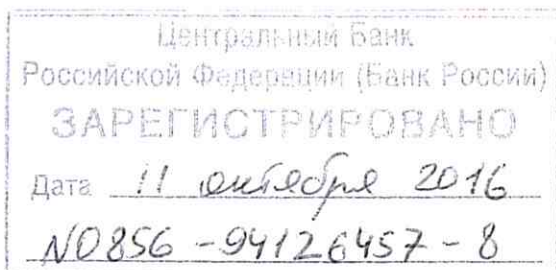 Центральный Банк
Российской Федерации (Банк России)
ЗАРЕГИСТРИРОВАНО
Дата 11 октября 2016
№0856-94126457-8